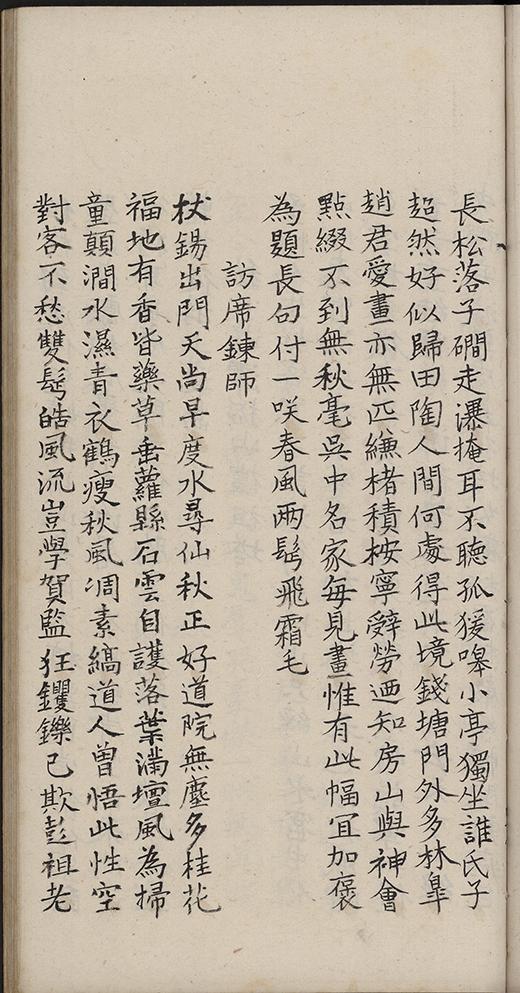 長松落子磵走瀑掩耳不聴孤猨嘷小亭獨坐誰氏子
超然好似歸田陶人間何處得此境錢塘門外多林臯
趙君愛畫亦無匹縑楮積桉寧辤勞迺知房山與神會
㸃綴不到無秋毫吳中名家每見畫惟有此幅冝加褒
為題長句付一咲春風兩鬂飛霜毛
訪席鍊師
杖錫出門天尚早度水尋仙秋正好道院無塵多桂花
福地有香皆藥草垂蘿縣石雲自護落葉滿壇風為掃
童顛澗水濕青衣鶴瘦秋風凋素縞道人曾悟此性空
對客不愁雙髩皓風流豈學賀監狂钁鑠已欺彭祖老